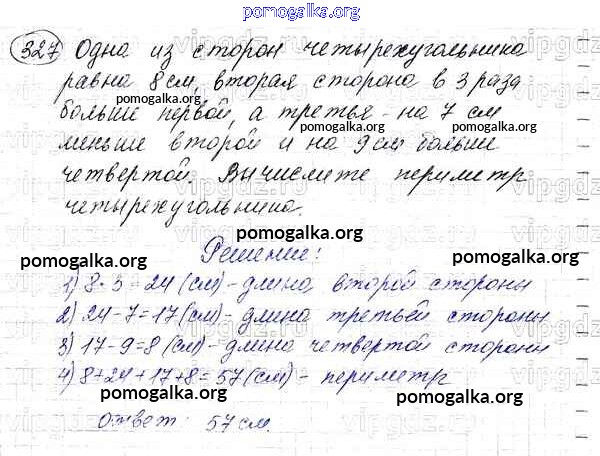 pomogalka.org
327 Одна из сторон четырехугольника
равна 8 см, вторая сторона в 3 раза
pomogalka.org pomogalka.org
больше первой, а третья - на 7 см
меньше второй и на 9 см больше
четвертой. Вычислите периметр
pomogalka.org
четырехугольника.
Решение:
pomogalka.org pomogalka.org
1) 8 · 3 = 24 (см) - длина второй стороны
2) 24 - 7 = 17 (см) - длина третьей стороны
pomogalka.org
3) 17 - 9 = 8 (см) - длина четвертой стороны
4) 8 + 24 + 17 + 8 = 57 (см) - периметр
pomogalka.org pomogalka.org
ответ: 57 см.